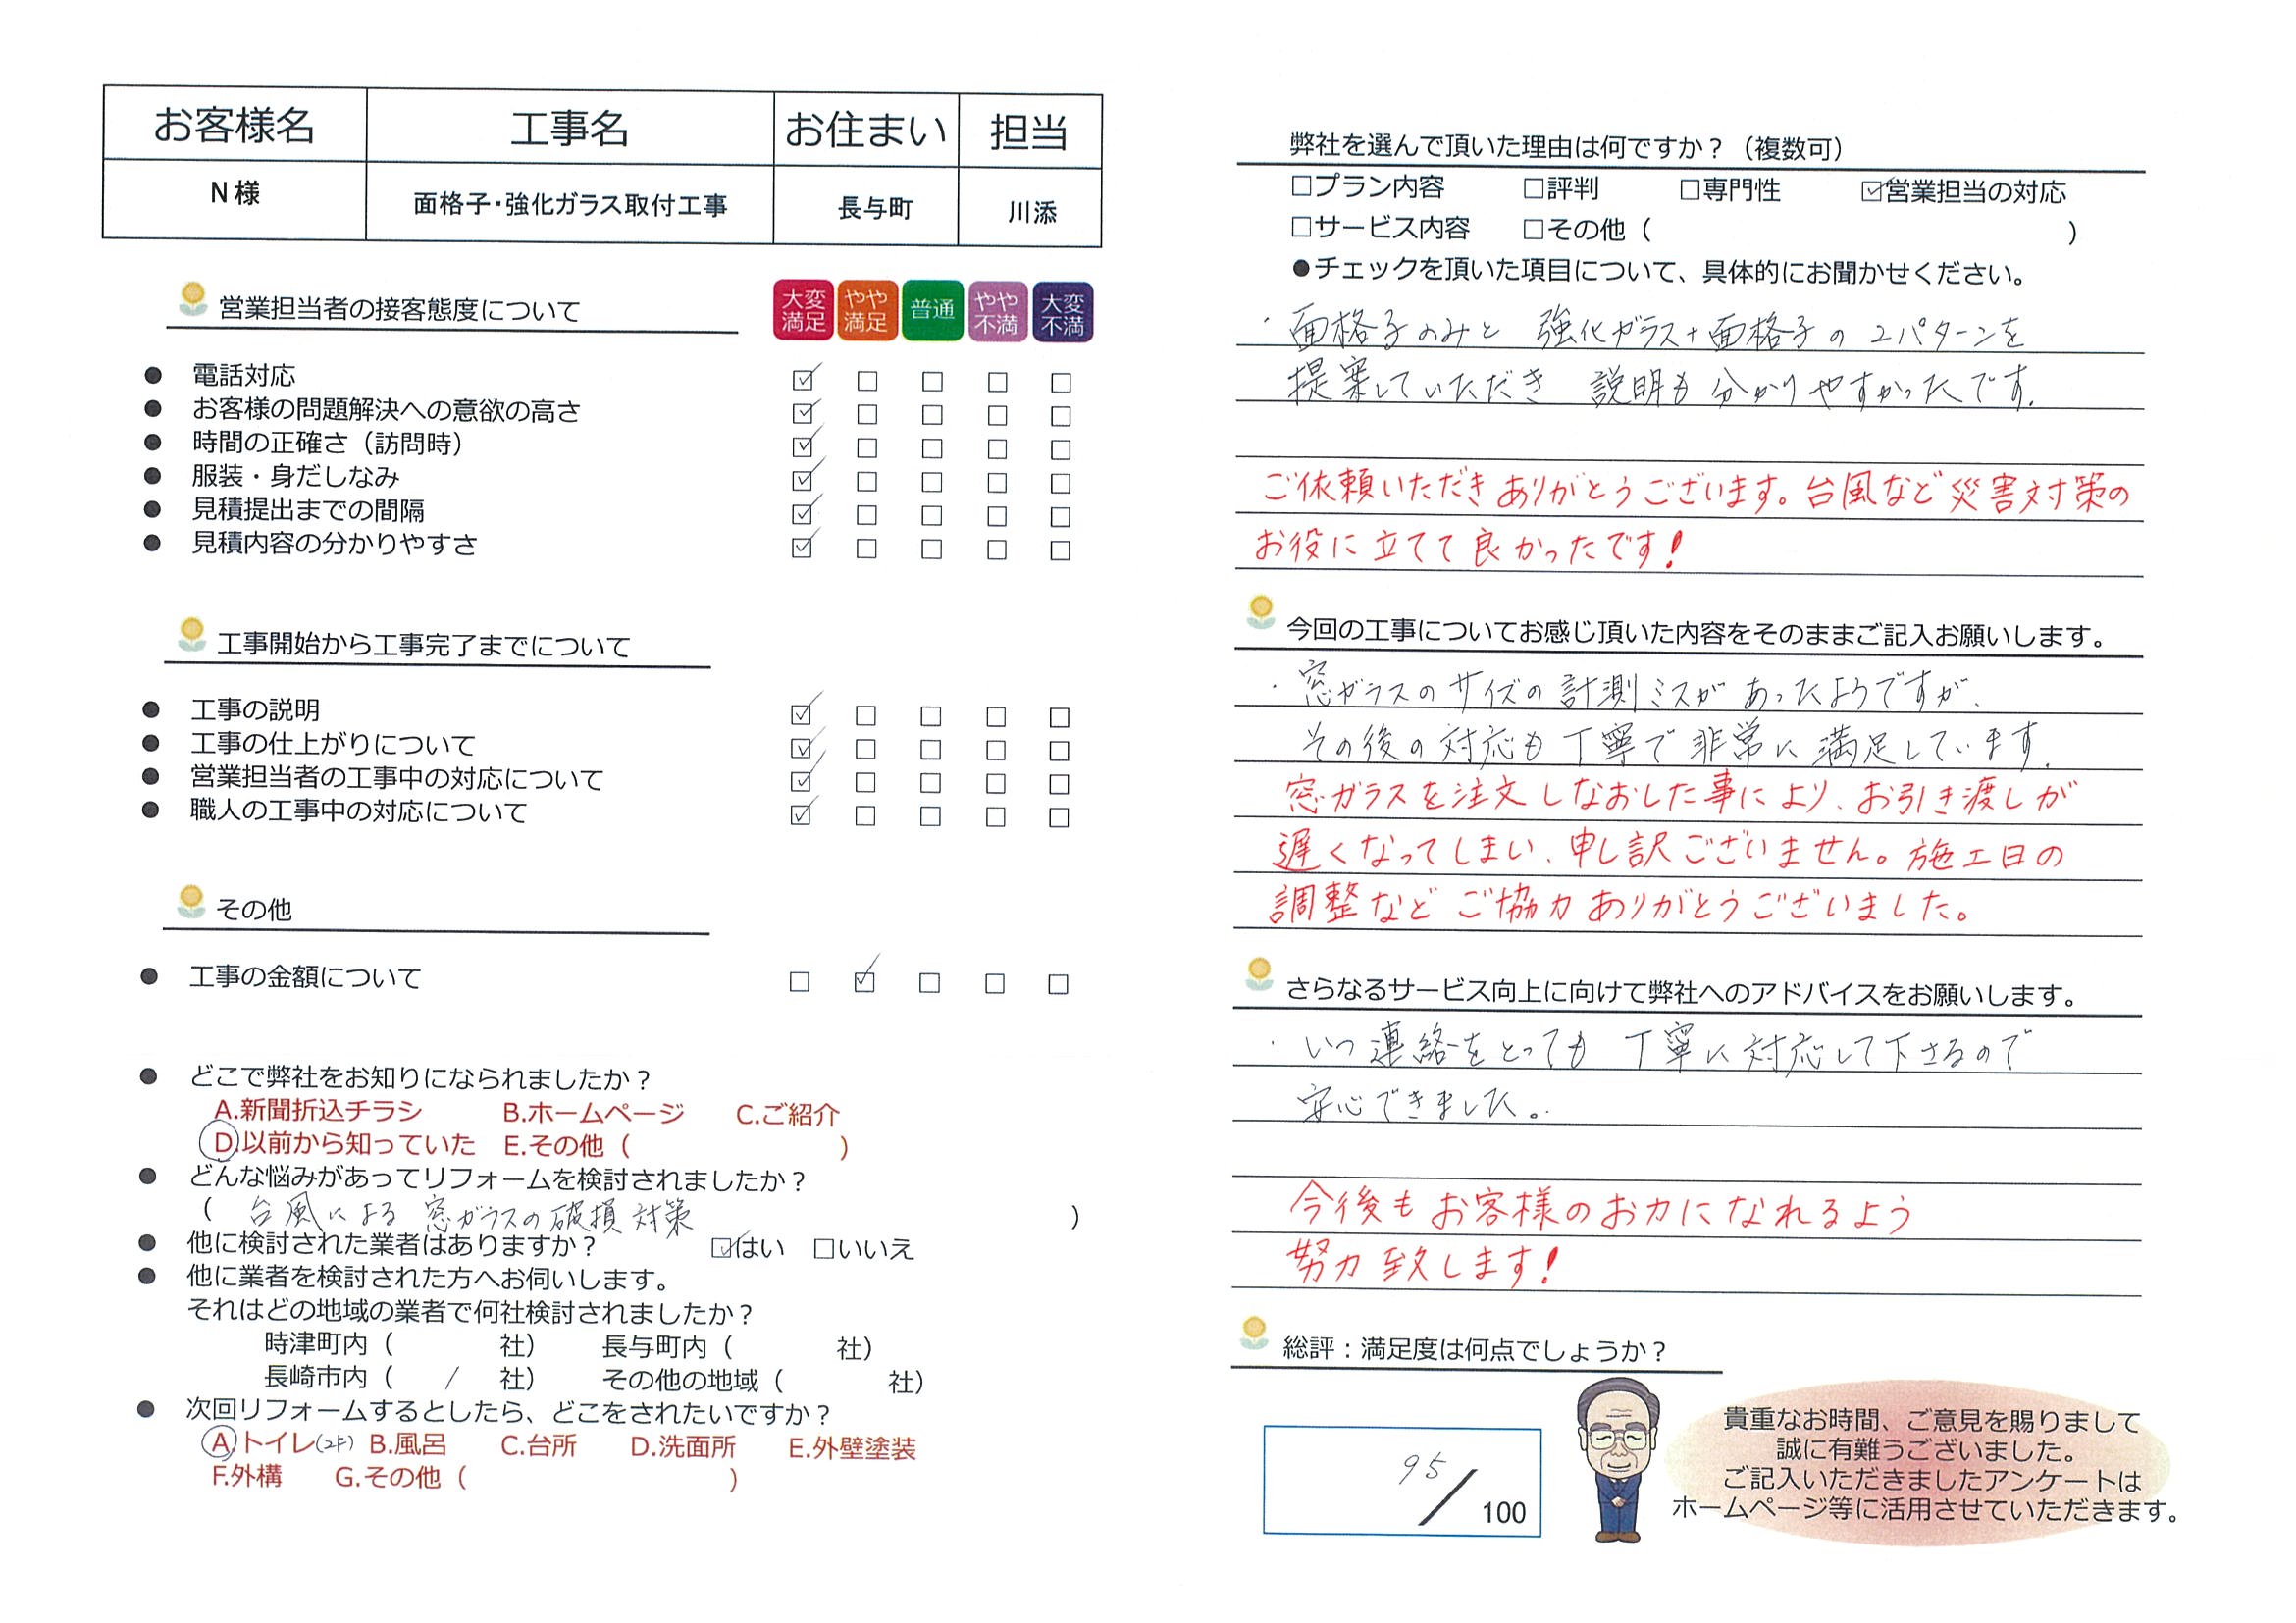 お客様名 工事名 お住まい 担当
N様 面格子・強化ガラス取付工事 長与町 川添
営業担当者の接客態度について
大変満足 やや満足 普通 やや不満 大変不満
● 電話対応 ☑ □ □ □ □
● お客様の問題解決への意欲の高さ ☑ □ □ □ □
● 時間の正確さ（訪問時） ☑ □ □ □ □
● 服装・身だしなみ ☑ □ □ □ □
● 見積提出までの間隔 ☑ □ □ □ □
● 見積内容の分かりやすさ ☑ □ □ □ □
工事開始から工事完了までについて
● 工事の説明 ☑ □ □ □ □
● 工事の仕上がりについて ☑ □ □ □ □
● 営業担当者の工事中の対応について ☑ □ □ □ □
● 職人の工事中の対応について ☑ □ □ □ □
その他
● 工事の金額について □ ☑ □ □ □
● どこで弊社をお知りになられましたか？
A.新聞折込チラシ B.ホームページ C.ご紹介
D.以前から知っていた E.その他（ ）
● どんな悩みがあってリフォームを検討されましたか？
（ 台風による 窓ガラスの破損対策 ）
● 他に検討された業者はありますか？ ☑はい □いいえ
● 他に業者を検討された方へお伺いします。
それはどの地域の業者で何社検討されましたか？
時津町内（ 社） 長与町内（ 社）
長崎市内（ / 社） その他の地域（ 社）
● 次回リフォームするとしたら、どこをされたいですか？
A.トイレ(2F) B.風呂 C.台所 D.洗面所 E.外壁塗装
F.外構 G.その他（ ）
弊社を選んで頂いた理由は何ですか？（複数可）
□プラン内容 □評判 □専門性 ☑営業担当の対応
□サービス内容 □その他（ ）
●チェックを頂いた項目について、具体的にお聞かせください。
・面格子のみと 強化ガラス+面格子の 2パターンを
提案していただき 説明も分かりやすかったです。
ご依頼いただきありがとうございます。台風など災害対策の
お役に立てて良かったです！
今回の工事についてお感じ頂いた内容をそのままご記入お願いします。
・窓ガラスのサイズの計測ミスがあったようですが、
その後の対応も丁寧で非常に満足しています。
窓ガラスを注文しなおした事により、お引き渡しが
遅くなってしまい、申し訳ございません。施工日の
調整など ご協力ありがとうございました。
さらなるサービス向上に向けて弊社へのアドバイスをお願いします。
・いつ連絡をとっても 丁寧に対応して下さるので
安心できました。
今後もお客様のお力になれるよう
努力致します！
総評：満足度は何点でしょうか？
95/100
貴重なお時間、ご意見を賜りまして
誠に有難うございました。
ご記入いただきましたアンケートは
ホームページ等に活用させていただきます。